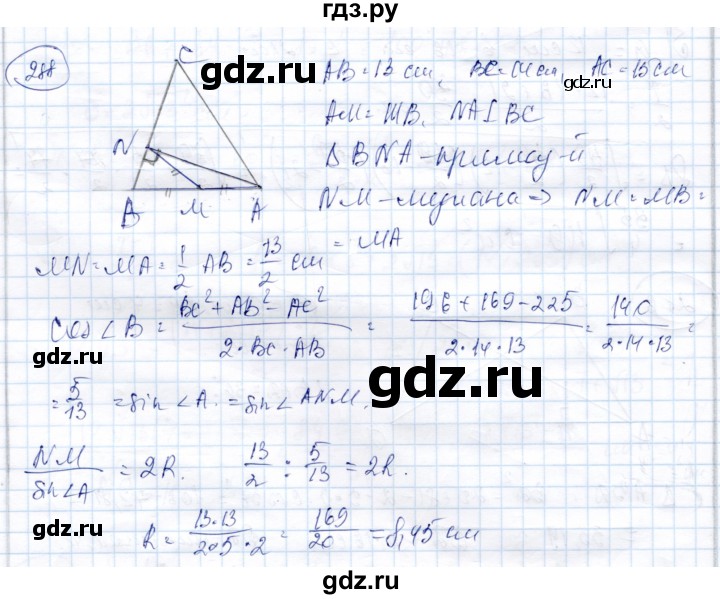 гдз.ру
288
C
gdz.ru
N
B M A
AB = 13 см, BC = 14 см, AC = 15 см
AM = MB, NA ⊥ BC
Δ BNA – прямоуг-й
NM – медиана => NM = MB =
= MA
MN = MA = 1/2 AB = 13/2 см
cos ∠B = (BC² + AB² - AC²)/(2·BC·AB) = (196 + 169 - 225)/(2·14·13) = 140/(2·14·13) =
gdz.ru
gdz.ru
= 5/13 = sin ∠A = sin ∠ANM.
NM/sin∠A = 2R. 13/2 : 5/13 = 2R.
gdz.ru
R = 13·13/(2·5·2) = 169/20 = 8,45 см
gdz.ru
gdz.ru